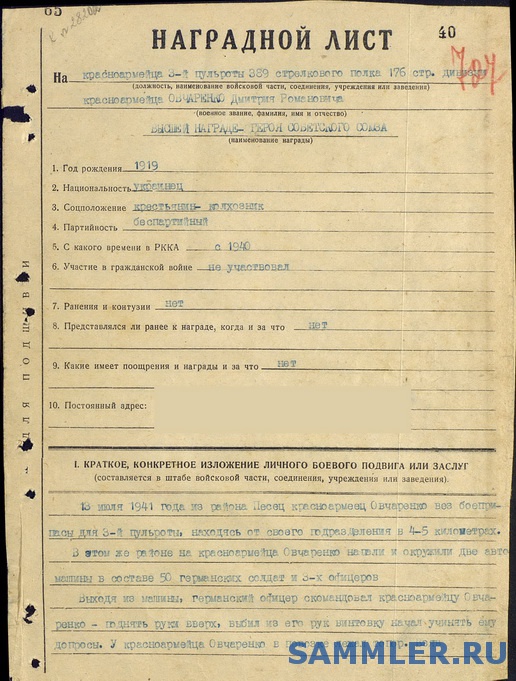 65
к №282
40
НАГРАДНОЙ ЛИСТ
707
На красноармейца 3-й пульроты 389 стрелкового полка 176 стр. дивизии
(должность, наименование войсковой части, соединения, учреждения или заведения)
красноармейца ОВЧАРЕНКО Дмитрия Романовича
(военное звание, фамилия, имя и отчество)
ВЫСШЕЙ НАГРАДЕ- ГЕРОЯ СОВЕТСКОГО СОЮЗА
(наименование награды)
1. Год рождения 1919
2. Национальность украинец
3. Соцположение крестьянин- колхозник
4. Партийность беспартийный
5. С какого времени в РККА с 1940
6. Участие в гражданской войне не участвовал
7. Ранения и контузии нет
8. Представлялся ли ранее к награде, когда и за что нет
9. Какие имеет поощрения и награды и за что нет
10. Постоянный адрес:
для подшивки
I. КРАТКОЕ, КОНКРЕТНОЕ ИЗЛОЖЕНИЕ ЛИЧНОГО БОЕВОГО ПОДВИГА ИЛИ ЗАСЛУГ
(составляется в штабе войсковой части, соединения, учреждения или заведения).
13 июля 1941 года из района Песец красноармеец Овчаренко вез боепри-
пасы для 3-й пульроты, находясь от своего подразделения в 4-5 километрах.
В этом же районе на красноармейца Овчаренко напали и окружили две авто-
машины в составе 50 германских солдат и 3-х офицеров
Выходя из машины, германский офицер скомандовал красноармейцу Овча-
ренко - поднять руки вверх, выбил из его рук винтовку начал учинять ему
допросы. У красноармейца Овчаренко в повозке лежал топор.
SAMMLER.RU